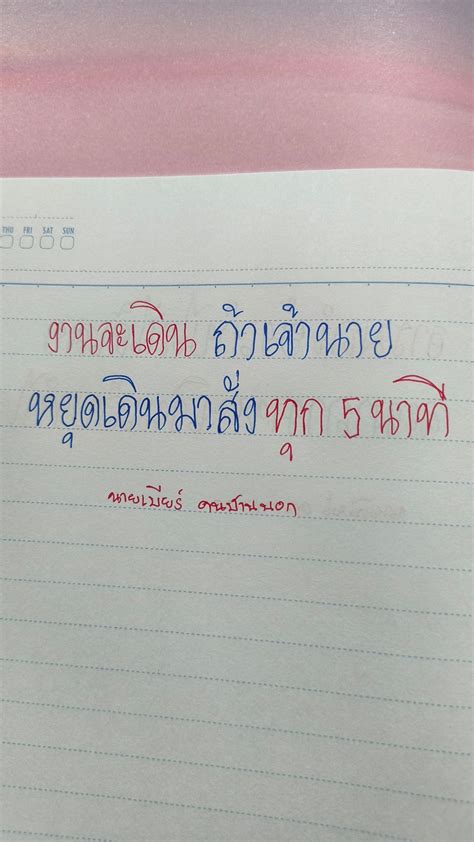 THU FRI SAT SUN
งานจะเดิน ถ้าเจ้านาย
หยุดเดินมาสั่งทุก 5 นาที
นายเบียร์ คนชานนอก